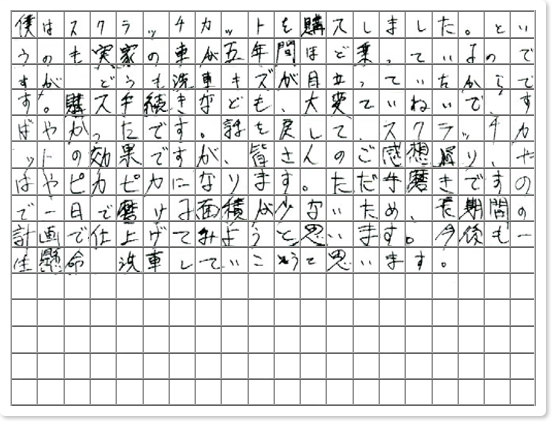 僕はスクラッチカットを購入しました。とい
うのも実家の車が五年間ほど乗っているので
すが、どうも洗車キズが目立っていたからで
す。購入手続きなども、大変ていねいで、す
ばやかったです。話を戻して、スクラッチカ
ットの効果ですが、皆さんのご感想通り、や
はやピカピカになります。ただ手磨きですの
で一日で磨ける面積が少ないため、長期間の
計画で仕上げてみようと思います。今後も一
生懸命、洗車していこうと思います。